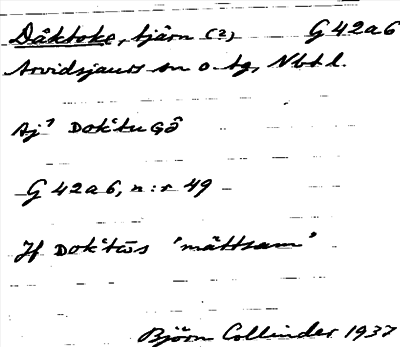 Dåktoke, tjärn (2) G 42a6
Arvidsjaurs sn o. tg, Nbt l.
Aj' DokʿtuGȯ̂
G 42a6, n:r 49
Jf Dokʿtōs 'måttsam'
Björn Collinder 1937